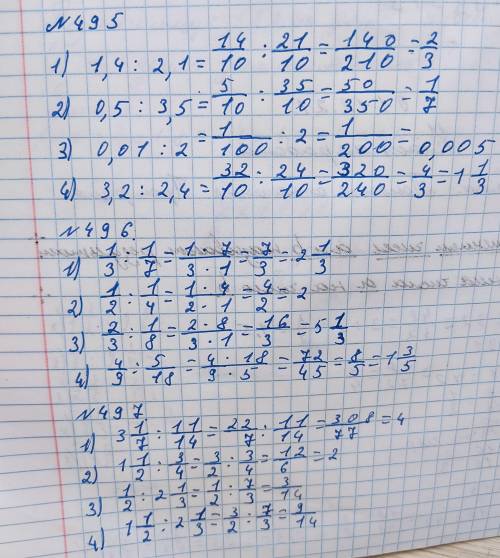 №495
1) 1,4 : 2,1 = 14/10 : 21/10 = 140/210 = 2/3
2) 0,5 : 3,5 = 5/10 : 35/10 = 50/350 = 1/7
3) 0,01 : 2 = 1/100 : 2 = 1/200 = 0,005
4) 3,2 : 2,4 = 32/10 : 24/10 = 320/240 = 4/3 = 1 1/3
№496
1) 1/3 : 1/7 = 1·7/3·1 = 7/3 = 2 1/3
2) 1/2 : 1/4 = 1·4/2·1 = 4/2 = 2
3) 2/3 : 1/8 = 2·8/3·1 = 16/3 = 5 1/3
4) 4/9 : 5/18 = 4·18/9·5 = 72/45 = 8/5 = 1 3/5
№497
1) 3 1/7 : 11/14 = 22/7 : 11/14 = 308/77 = 4
2) 1 1/2 : 3/4 = 3/2 : 3/4 = 12/6 = 2
3) 1/2 : 2 1/3 = 1/2 : 7/3 = 3/14
4) 1 1/2 : 2 1/3 = 3/2 : 7/3 = 9/14